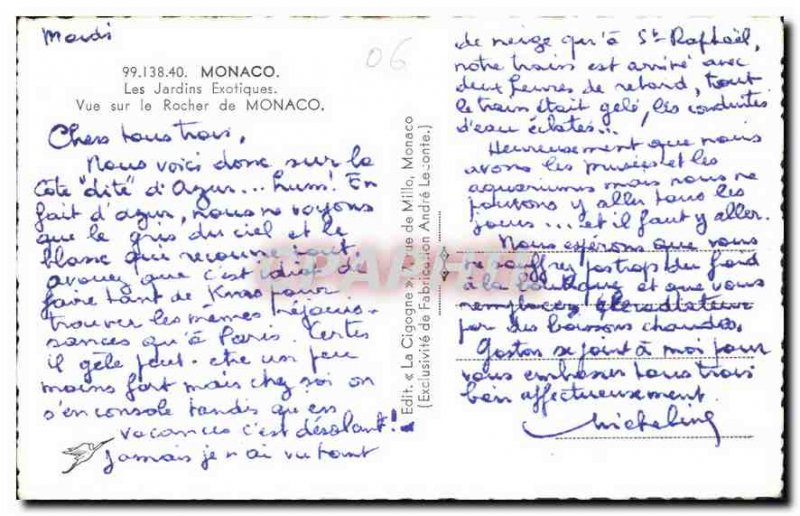 Mardi
06
99.138.40. MONACO.
Les Jardins Exotiques.
Vue sur le Rocher de MONACO.
Chers tous trois,
Nous voici donc sur la
Côte "dite" d'Azur... hum! En
fait d'azur, nous ne voyons
que le gris du ciel et le
blanc que recouvre tout
avouez que c'est idiot de
faire tant de Kms pour
trouver les mêmes réjouis-
sances qu'à Paris. Certes
il gèle peut-être un peu
moins fort mais chez soi on
s'en console tandis qu'en
vacances c'est désolant!
Jamais je n'ai vu tant
Edit. « La Cigogne » rue de Millo, Monaco
(Exclusivité de Fabrication André Leconte.)
de neige qu'à St-Raphaël,
notre train est arrivé avec
deux heures de retard, tout
le train était gelé, les conduites
d'eau éclatées...
Heureusement que nous
avons les musées et les
aquariums mais nous ne
pouvons y aller tous les
jours... et il faut y aller.
Nous espérons que vous
ne souffrez pas trop du froid
à la boutique et que vous
remplacez le radiateur
par des boissons chaudes.
Gaston se joint à moi pour
vous embrasser tous trois
bien affectueusement.
Micheline
CPARAMA